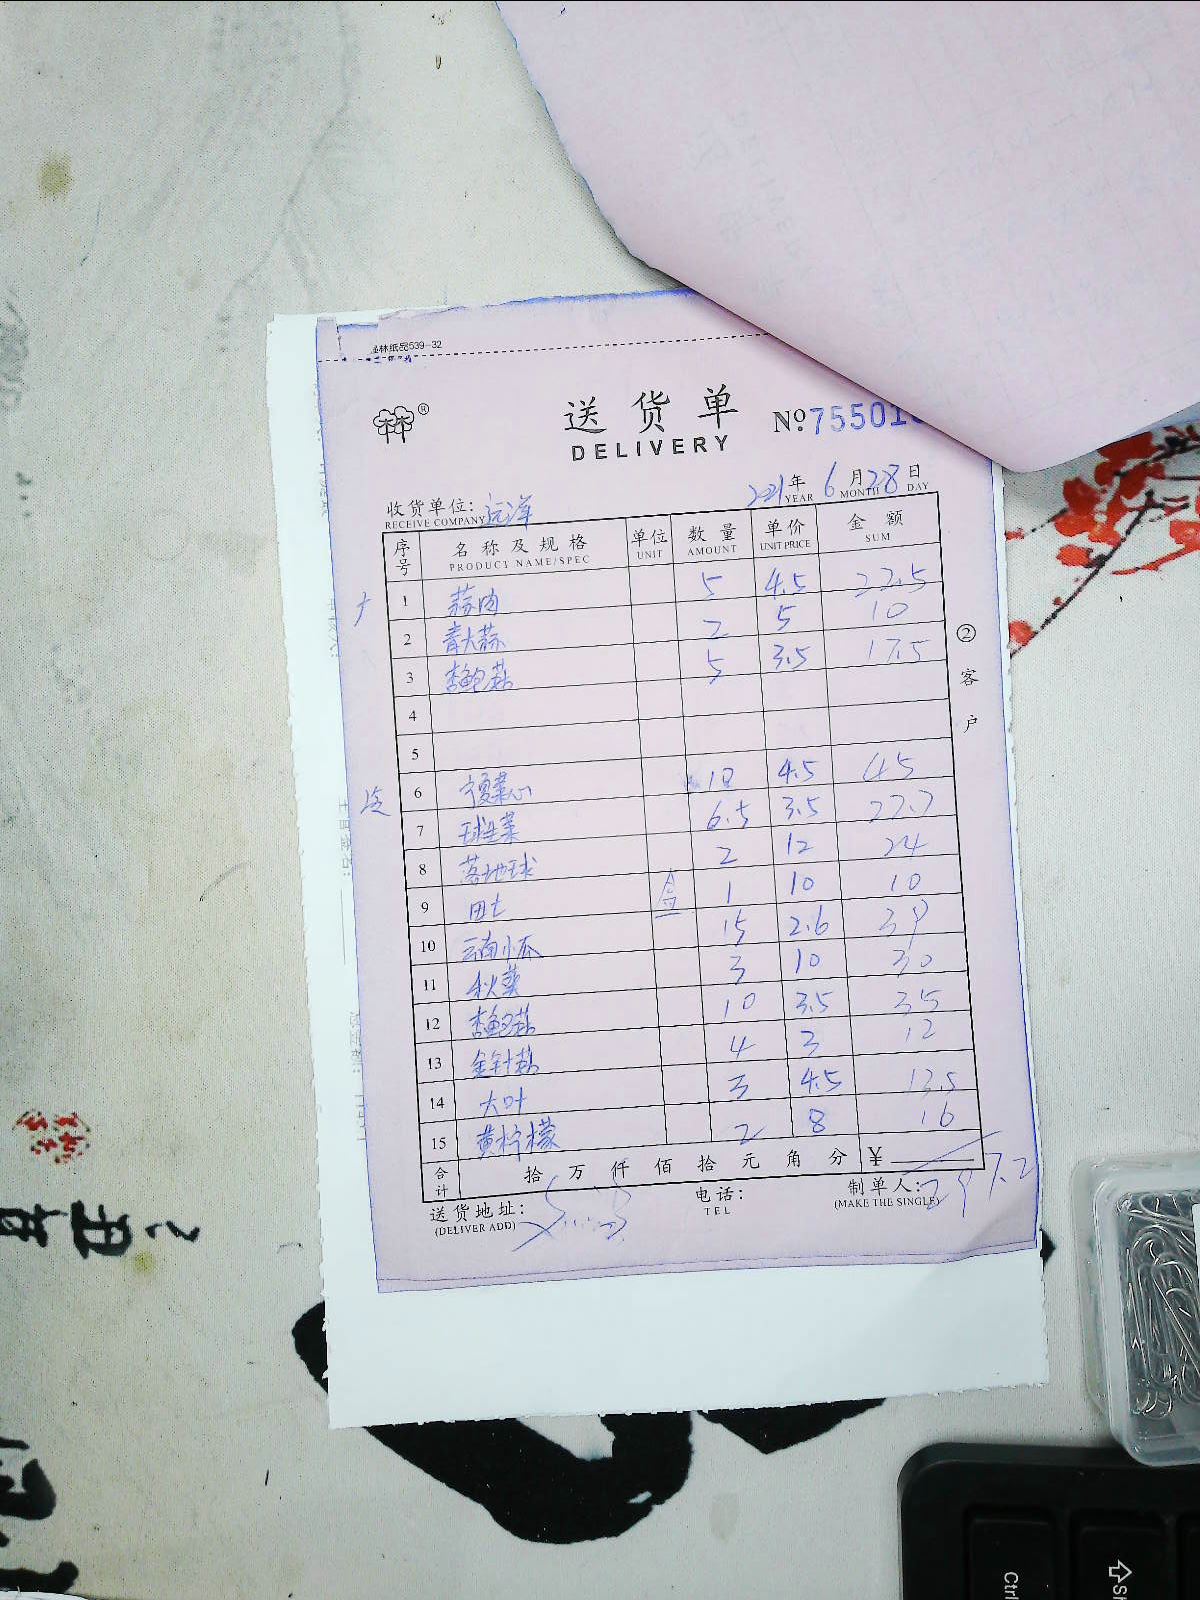 林纸品539-32
林®
送货单
DELIVERY
№75501
收货单位：远洋
RECEIVE COMPANY
2021年6月28日
YEAR MONTH DAY
序号 名称及规格 单位 数量 单价 金额
PRODUCT NAME/SPEC UNIT AMOUNT UNIT PRICE SUM
1 蒜肉 5 4.5 22.5
2 青大蒜 2 5 10
3 杏鲍菇 5 3.5 17.5
4
5
6 宁夏菜心 10 4.5 45
7 球生菜 6.5 3.5 22.7
8 落地球 2 12 24
9 田七 盒 1 10 10
10 云南小瓜 15 2.6 39
11 秋葵 3 10 30
12 杏鲍菇 10 3.5 35
13 金针菇 4 3 12
14 大叶 3 4.5 13.5
15 黄柠檬 2 8 16
合计 拾万仟佰拾元角分 ¥
297.2
送货地址：
(DELIVER ADD)
电话：
TEL
制单人：
(MAKE THE SINGLE)
②客户
Ctrl